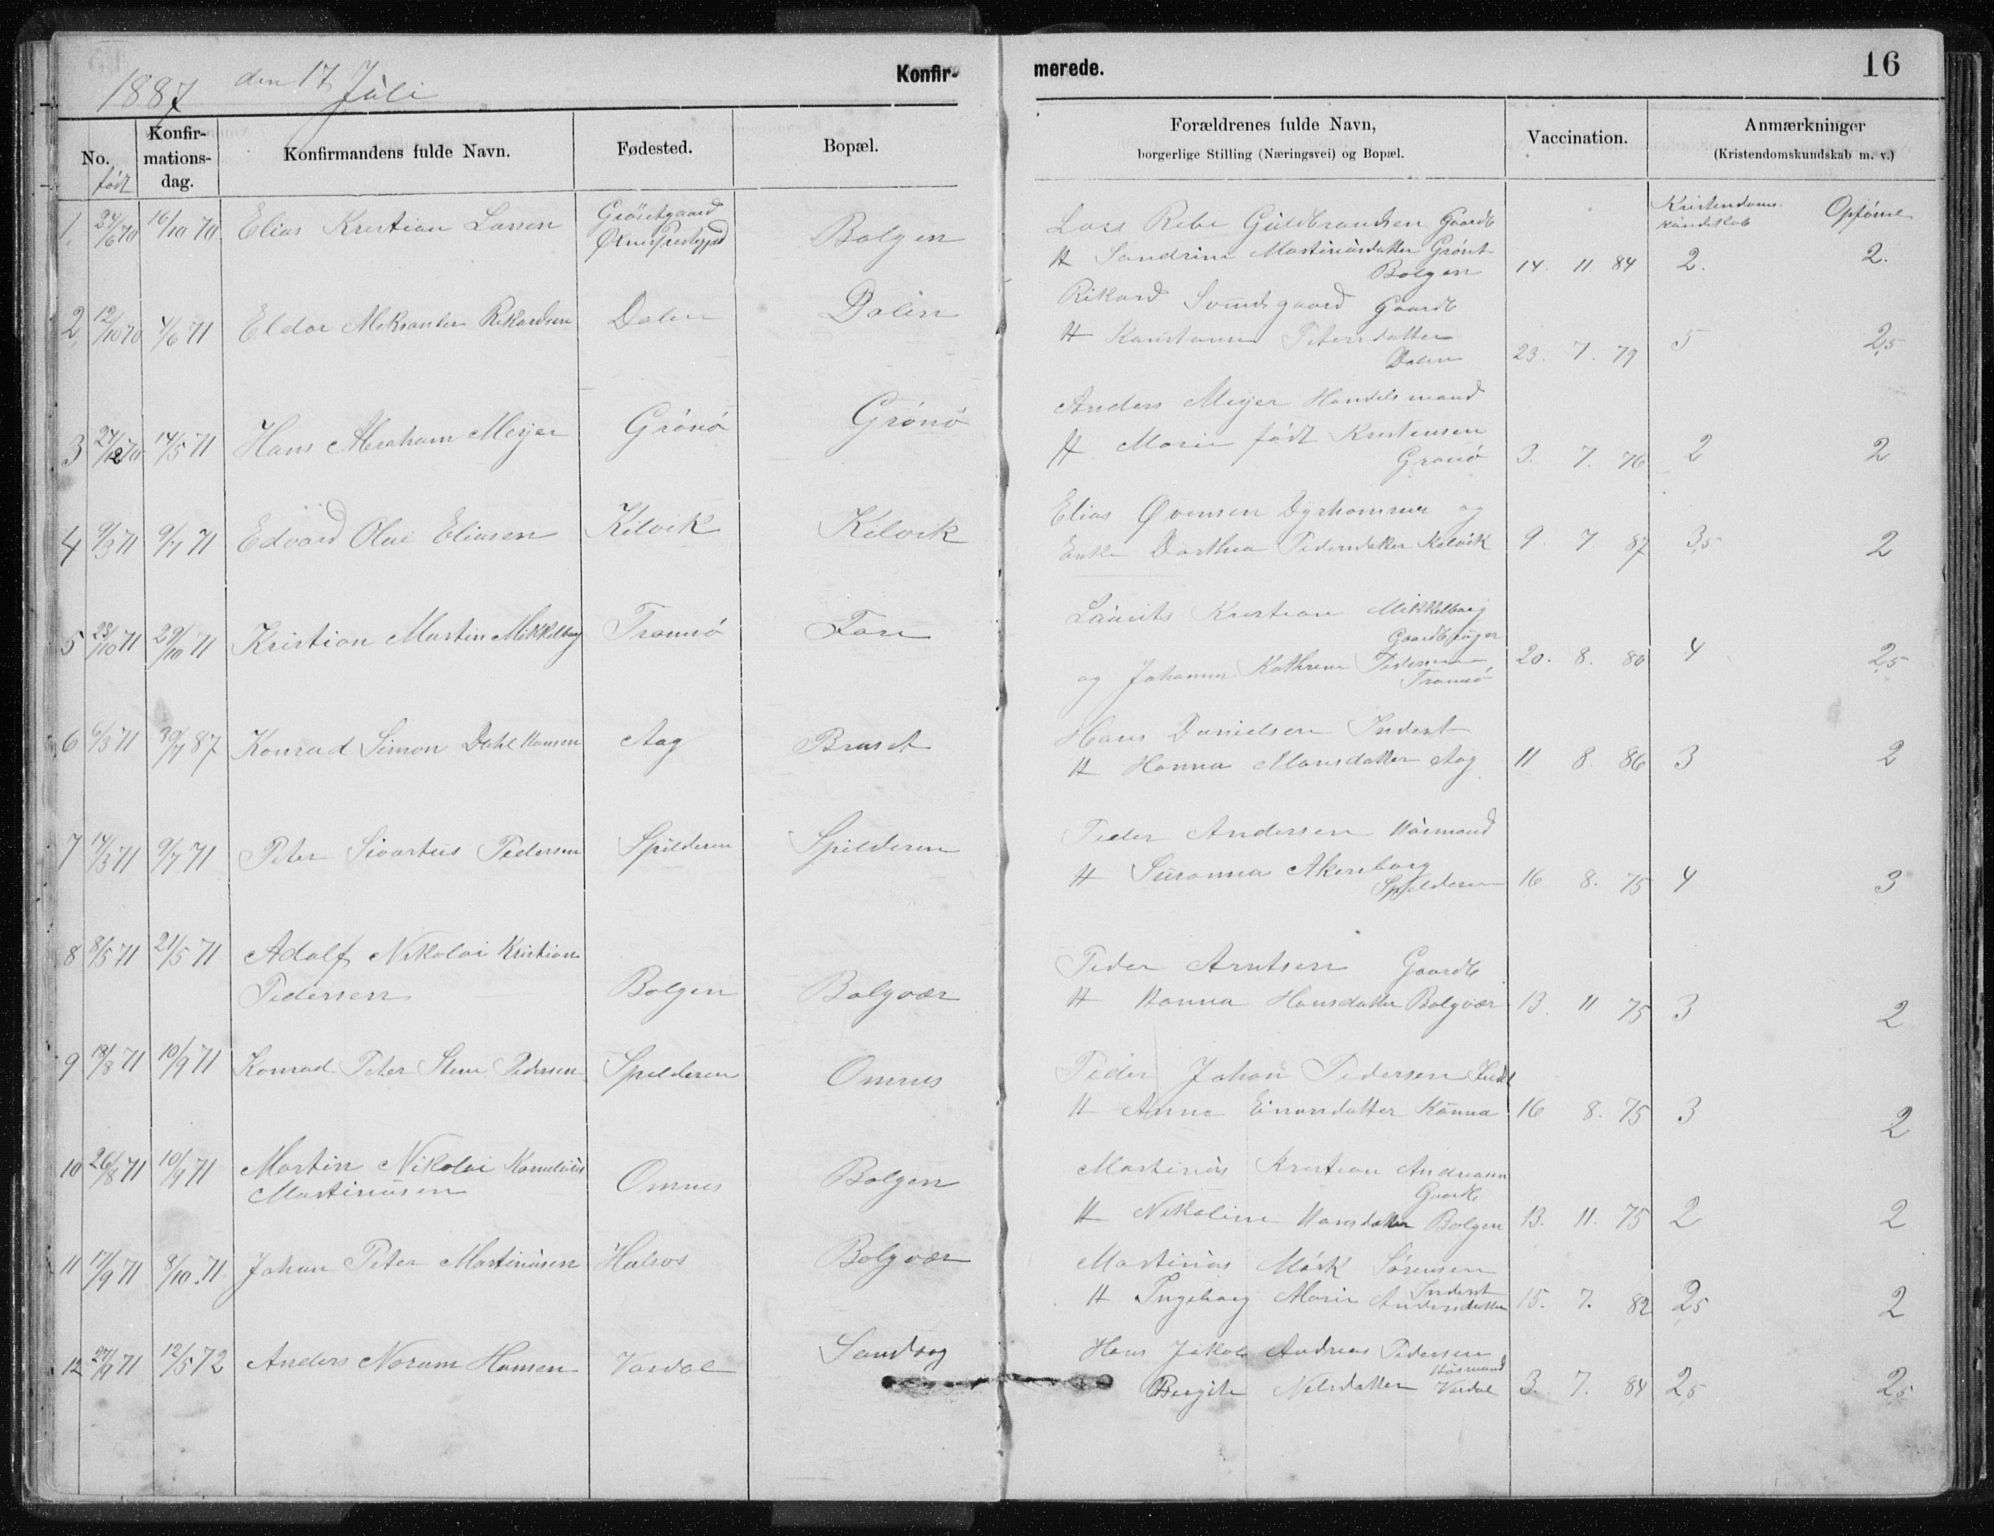 1887 den 17 Juli
Konfir-
merede.
16
No.
født
Konfir-
mations-
dag.
Konfirmandens fulde Navn.
Fødested.
Bopæl.
Forældrenes fulde Navn,
borgerlige Stilling (Næringsvei) og Bopæl.
Vaccination.
Anmærkninger
(Kristendomskundskab m. v.)
Kristendoms-
kundskab
1. 24/6 70 16/10 70 Elias Kristian Larsen Bolgen
Lars Guldbrandsen Gaardb
Martinusdatter
Bolgen 14. 11 84 2. 2.
2. 12/10 70 4/6 71 Eldor Rikardsen Dalen Dalen
Rikard Gaardb
Petersdatter
Dalen 23. 7. 79 5 2,5
3 27/12 70 14/5 71 Hans Abraham Meyer Grönö Grönö
Anders Meyer Handelsmand
H Marie født Kristensen
Grönö 3. 7. 76 2 2
4 9/3 71 9/7 71 Edvard Olai Eliasen Kilvik Kilvik
Elias Øvensen og
Enke Dorthea Pedersdatter Kilvik 9. 7 87 3,5 2
5 23/10 71 29/10 71 Kristian Martin Mikkelborg Tromsö Fore
Laurits Kristian Mikkelborg
og Johanna Kathrine Pedersen
Tromsö 20. 8. 80 4 2,5
6 6/3 71 30/7 87 Konrad Simon Dahl Hansen Aag Braset
Hans Danielsen Inderst
H Hanna Monsdatter Aag 11 8 86 3 2
7 14/3 71 9/7 71 Peter Sivertus Pedersen Spilderen Spilderen
Peder Andersen Husmand
H Susanna Akersborg
Spilderen 16 8. 75 4 3
8 8/5 71 21/5 71 Adolf Nikolai Kristian
Pedersen Bolgen Bolgvær
Peder Arntsen Gaardb
H Hanna Hansdatter Bolgvær 13. 11 75 3 2
9 18/8 71 10/9 71 Konrad Peter Pedersen Spilderen Omnes
Peder Johan Pedersen
H Anna 16 8. 75 3 2
10 26/8 71 10/9 71 Martin Nikolai Kornelius
Martinusen Omnes Bolgen
Martinus Kristian
Gaardb
H Nikoline Hansdatter Bolgen 13. 11. 75 2 2
11 17/9 71 8/10 71 Johan Peter Martinusen Halsos Bolgvær
Martinus Mørk Sørensen
Inderst
H Ingeborg Marie Andersdatter 15. 7. 82 2,5 2
12 27/9 71 12/5 72 Anders Norum Hansen Vardal Sandvog
Hans Jakob Andreas Pedersen
Husmand
Bergite Nelsdatter Vardal 3. 7. 84 2,5 2,5